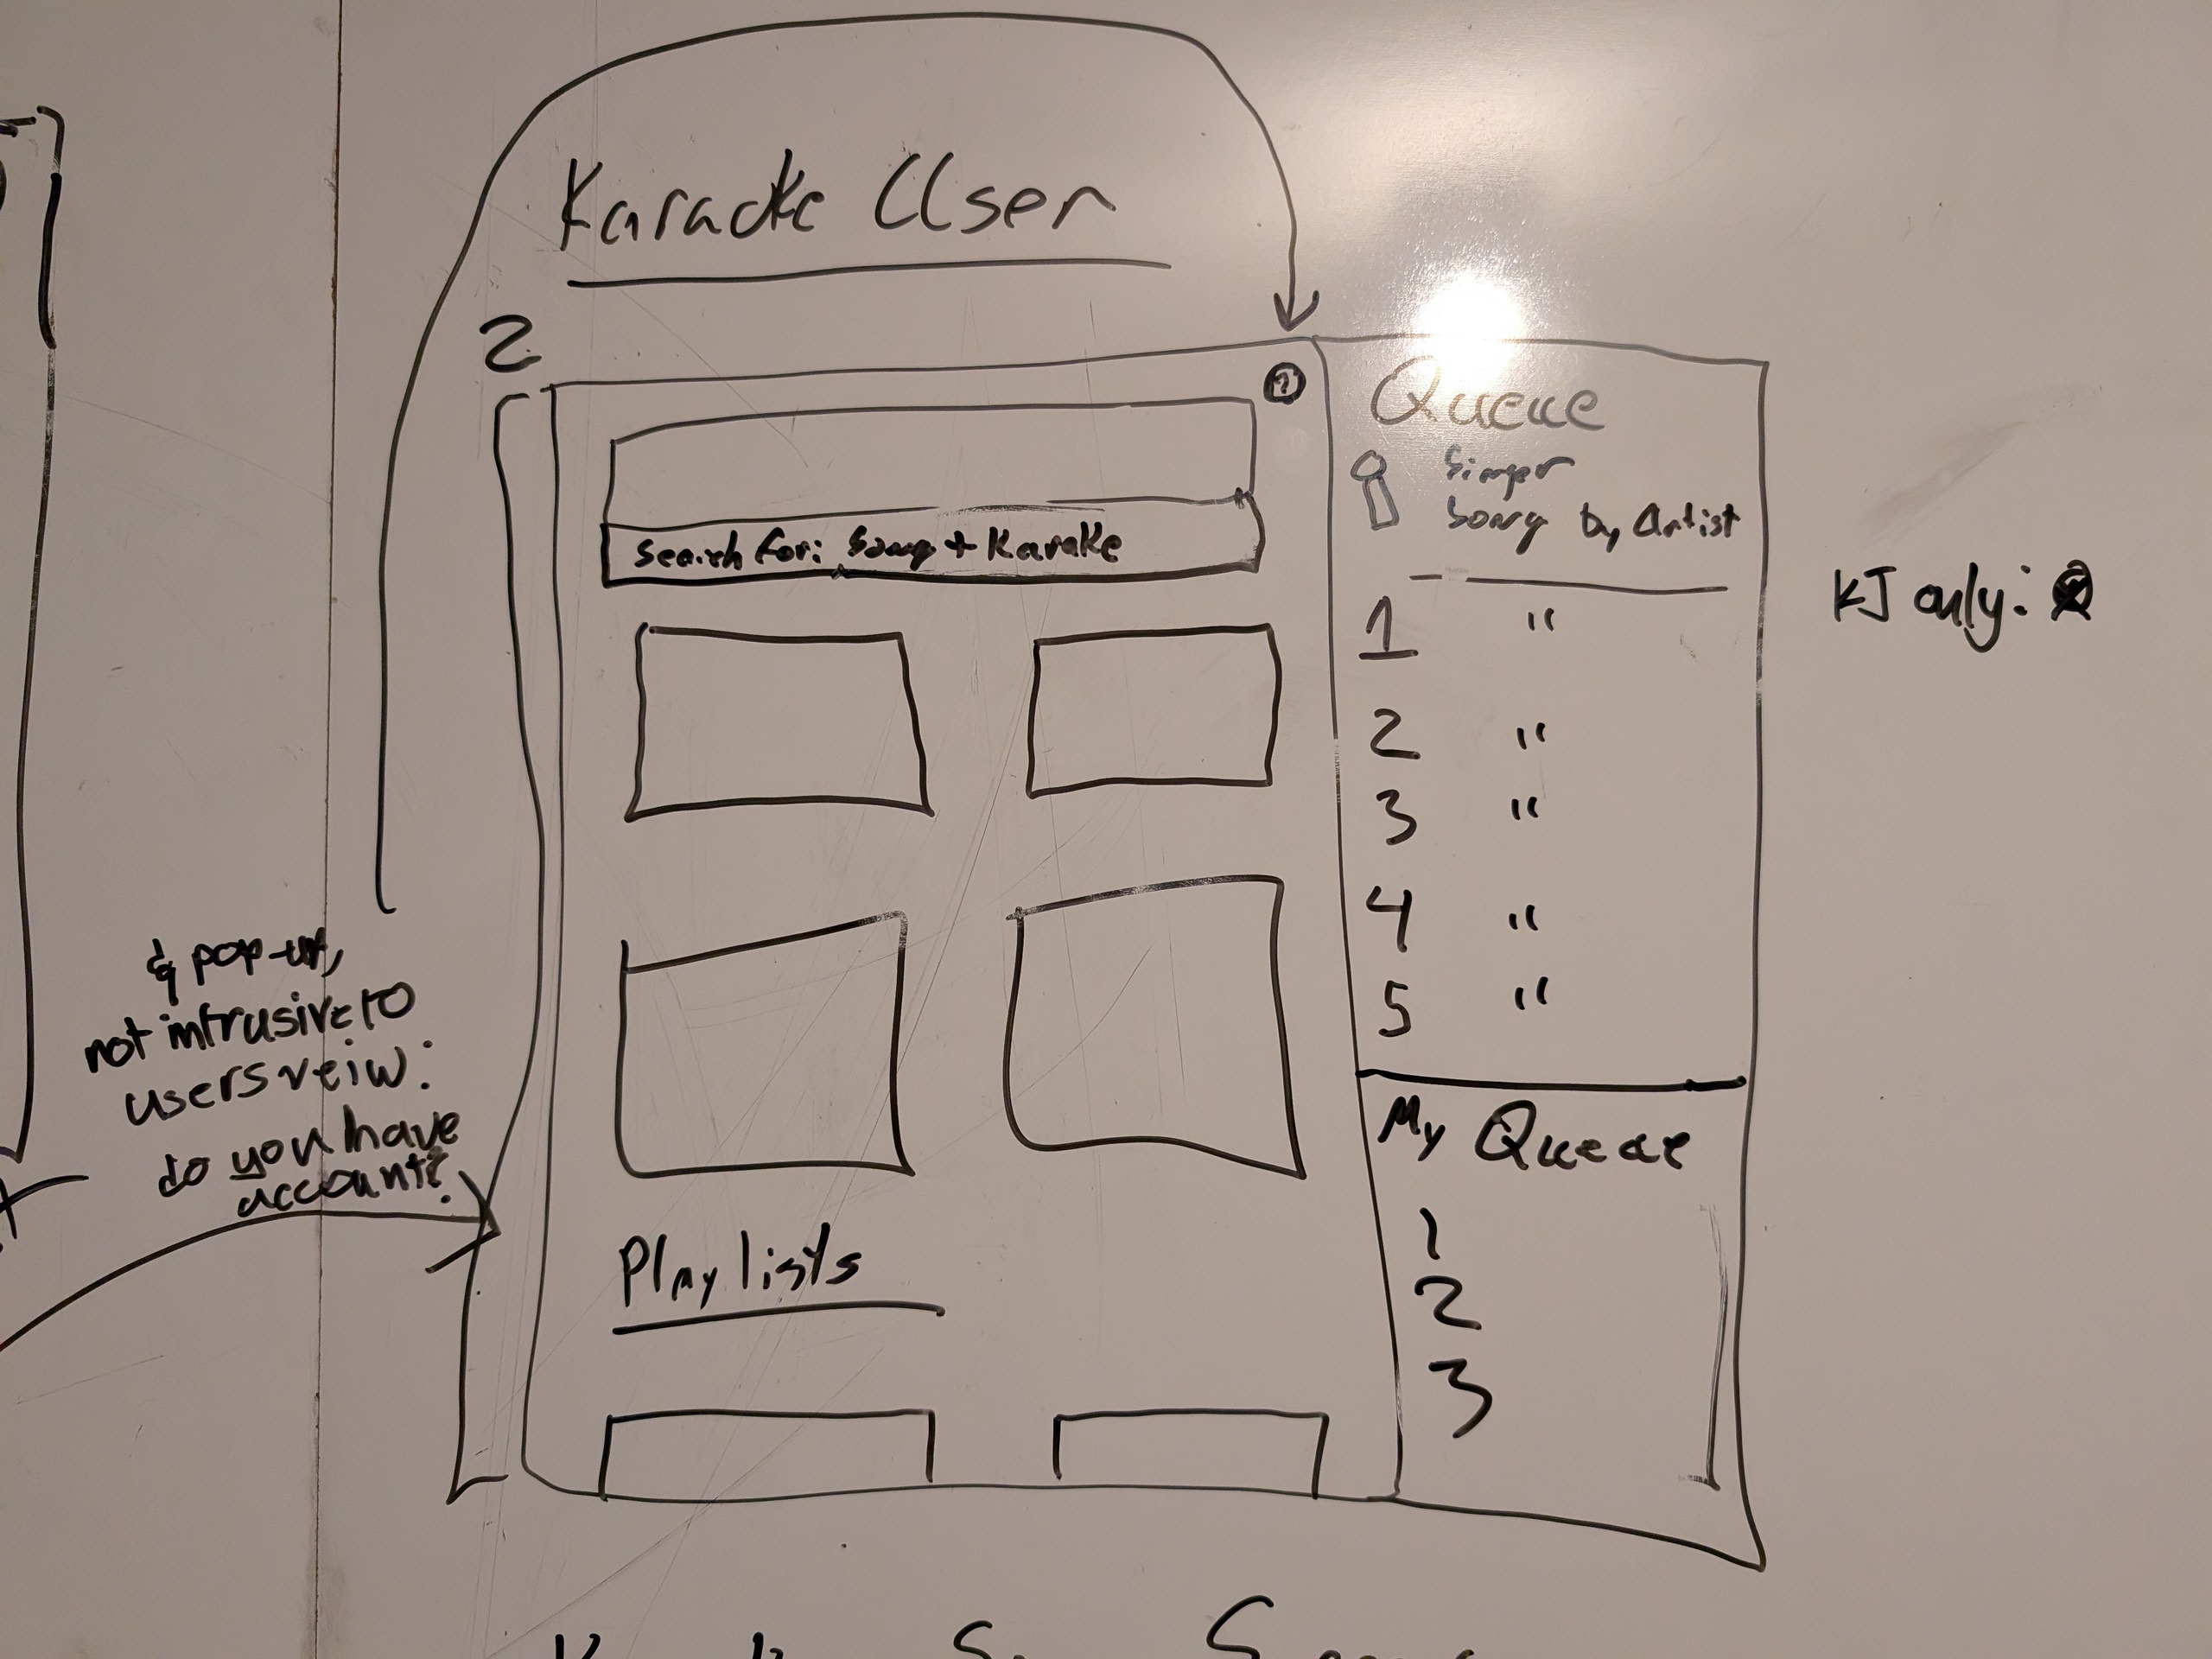 Karaoke User
2
?
Search for: Song + Karake
Playlists
Queue
Singer
Song by Artist
1 "
2 "
3 "
4 "
5 "
My Queue
1
2
3
KJ only:
& pop-up,
not intrusive to
users veiw:
do you have
account?